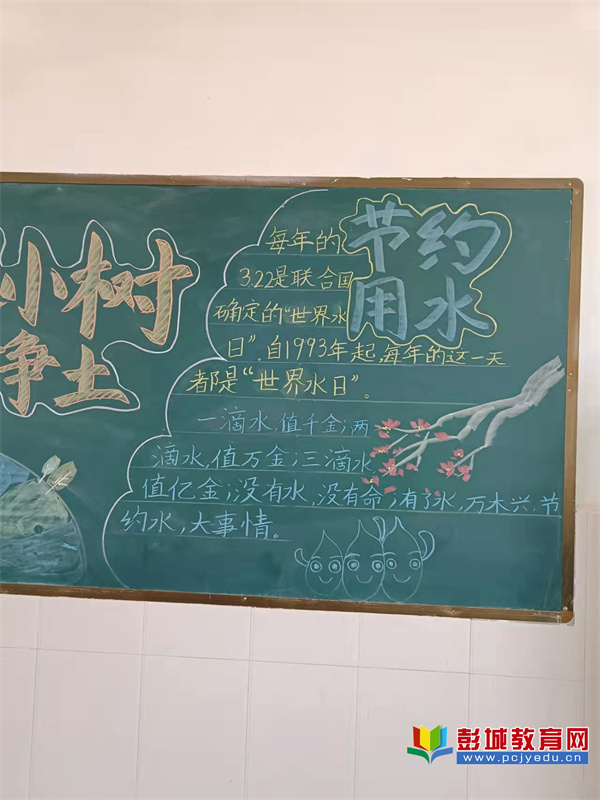 小树
争土
节约
用水
每年的
3.22是联合国
确定的“世界水
日”.自1993年起,每年的这一天
都是“世界水日”。
一滴水,值千金;两
滴水,值万金;三滴水,
值亿金;没有水,没有命;有了水,万木兴.节
约水,大事情。
彭城教育网
www.pcjyedu.cn